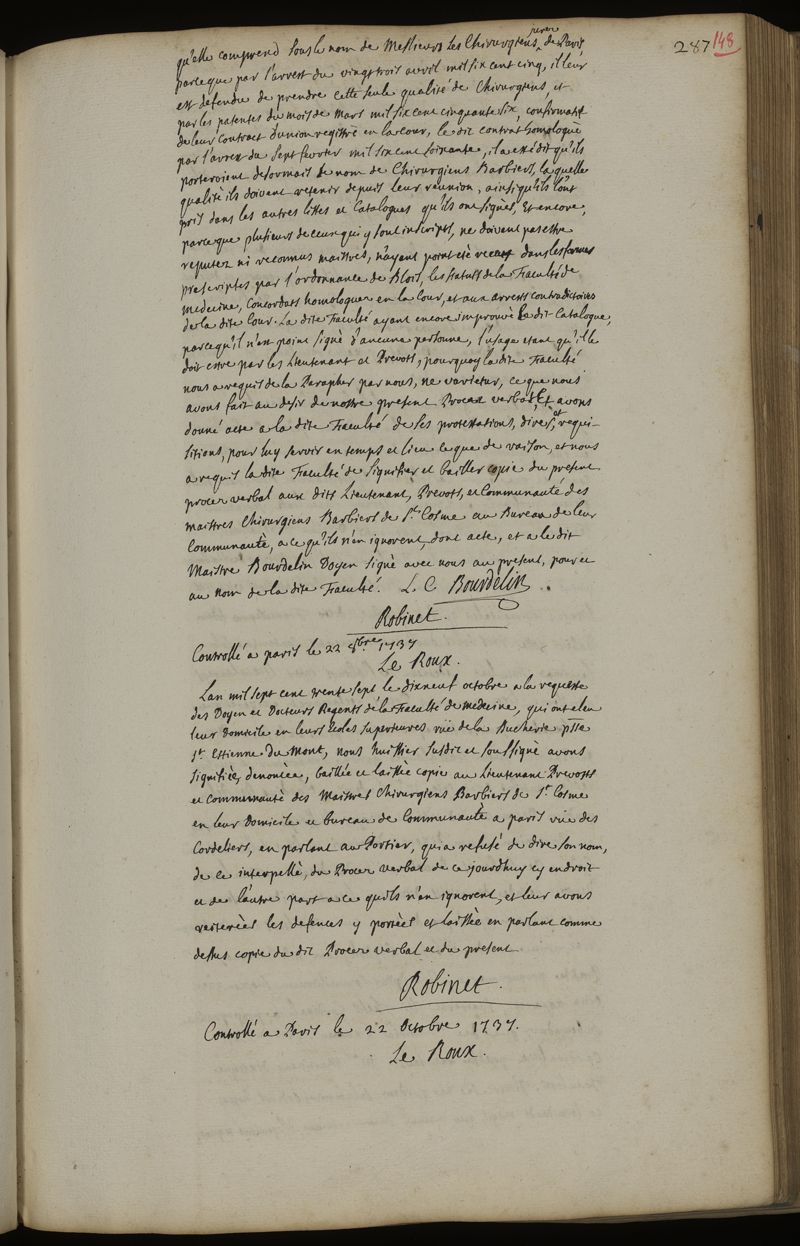 287 148
qu'elle comprend sous le nom de Messieurs les Chirurgiens jurez de Paris,
parceque par l'arrest du vingt trois avril mil six cent cinq, il leur
est defendu de prendre cette seule qualité de Chirurgiens, et
par les patentes du mois de Mars mil six cent cinquante six, confirmatif
de leur Contract d'union registré en la cour, le dit contrat homologué
par l'arrest du sept fevrier mil six cent soixante, il a esté dit qu'ils
porteroient desormais le nom de Chirurgiens Barbiers, laquelle
qualité ils doivent retenir depuis leur reunion, ainsi qu'ils l'ont
pris dans les autres listes et Catalogues qu'ils ont signés, Et encore,
parceque plusieurs de ceux qui y sont inscripts, ne doivent pas estre
reputez ni reconnus maistres, n'ayant point eté receus dans les formes
prescriptes par l'ordonnance de Blois, les statuts de la Faculté de
medecine, Concordats homologuez en la Cour, et aux arrests contradictoires
de la dite Cour. La dite Faculté ayant encore improuvé le dit Catalogue,
parcequ'il n'est point signé d'aucune personne, l'usage etant qu'il le
doit estre par les Lieutenant et Prevosts, pourquoy la dite Faculté
nous a requis de la Parapher par nous, ne varietur, ce que nous
avons fait au desir de nostre present Procez verbal, Et avons
donné acte a la dite Faculté de ses protestations, dires, et requi-
sitions, pour luy servir en temps et lieu ce que de raison, et nous
a requis la dite Faculté de signifier et bailler copie du present
procez verbal aux dits Lieutenant, Prevosts, et Communauté des
maistres Chirurgiens Barbiers de St. Cosme au Bureau de leur
Communauté, a ce qu'ils n'en ignorent, dont acte, et a le dit
Maistre Bourdelin Doyen signé avec nous au present, pour et
au nom de la dite Faculté. L. C. Bourdelin.
Robinet.
Controllé a paris le 22 8bre 1737
Le Roux.
L'an mil sept cent trente sept le dixneuf octobre a la requeste
des Doyen et Docteurs Regents de la Faculté de medecine, qui ont elu
leur Domicile en leurs Ecoles superieures rüe de la Bucherie psse
St. Estienne du Mont, nous huissier susdit et soussigné avons
signifiée, denoncée, baillée et laissée copie au Lieutenant Prevosts
et Communauté des Maistres Chirurgiens Barbiers de St. Cosme
en leur Domicile et bureau de Communauté a paris rüe des
Cordeliers, en parlant au Portier, qui a refusé de dire son nom,
de ce interpellé, du Procez verbal de ce jourdhuy cy endroit
et de l'autre part a ce qu'ils n'en ignorent, et leur avons
reiterées les defences y portées et laissée en parlant comme
dessus copie du dit Procez verbal et du present
Robinet.
Controllé a Paris le 22 Octobre 1737.
Le Roux.